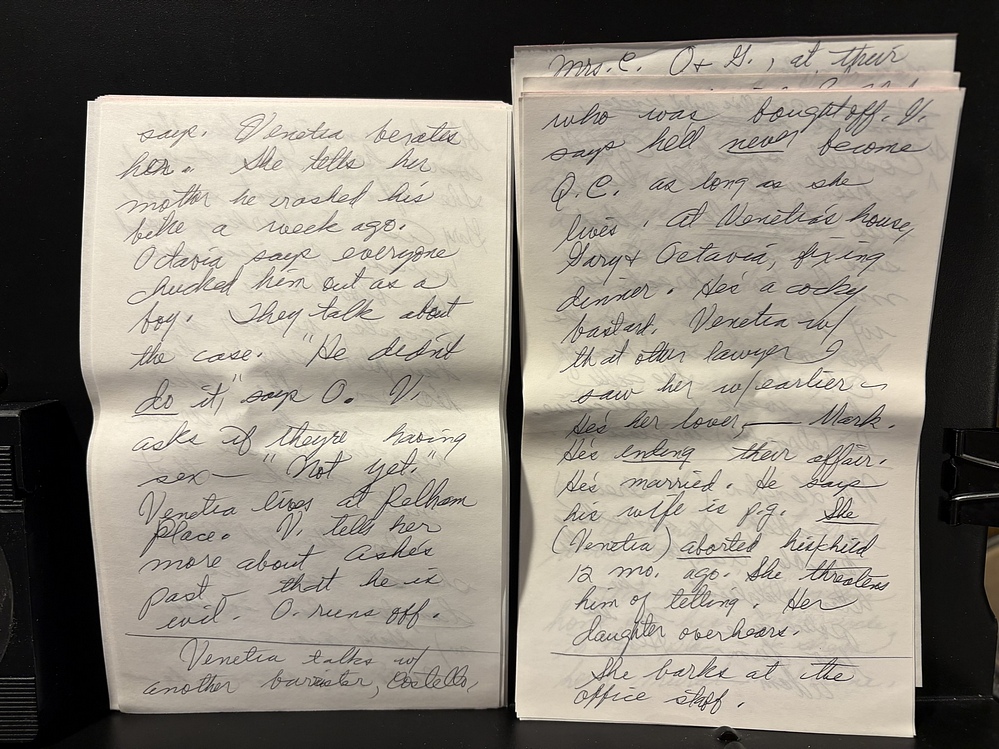 says. Venetia berates
her. She tells her
mother he crashed his
bike a week ago.
Octavia says everyone
chucked him out as a
boy. They talk about
the case. "He didn't
do it," says O. V.
asks if they're having
sex— "Not yet."
Venetia lives at Pelham
Place. V. tells her
more about Ashe's
past — that he is
evil. O. runs off.
Venetia talks w/
another barrister, Costello,
Mrs. C. O + G., at their
who was bought off. V.
says hell never become
Q.C. as long as she
lives. At Venetia's house,
Gary + Octavia, fixing
dinner. He's a cocky
bastard. Venetia w/
that other lawyer I
saw her w/ earlier —
He's her lover, — Mark.
He's ending their affair.
He's married. He says
his wife is p.g. She
(Venetia) aborted his child
12 mo. ago. She threatens
him of telling. Her
daughter overhears.
She barks at the
office staff.